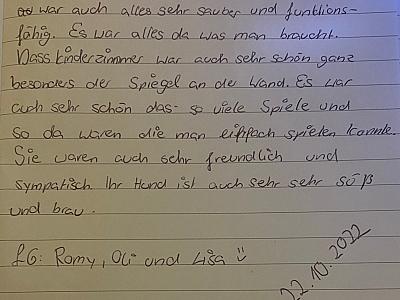 es war auch alles sehr sauber und funktions-
fähig. Es war alles da was man braucht.
Dass Kinderzimmer war auch sehr schön ganz
besonders der Spiegel an der Wand. Es war
auch sehr schön das so viele Spiele und
so da waren die man einfach spielen konnte.
Sie waren auch sehr freundlich und
sympatisch Ihr Hund ist auch sehr sehr süß
und brav.
LG: Romy, Oli und Lisa
22.10.2022